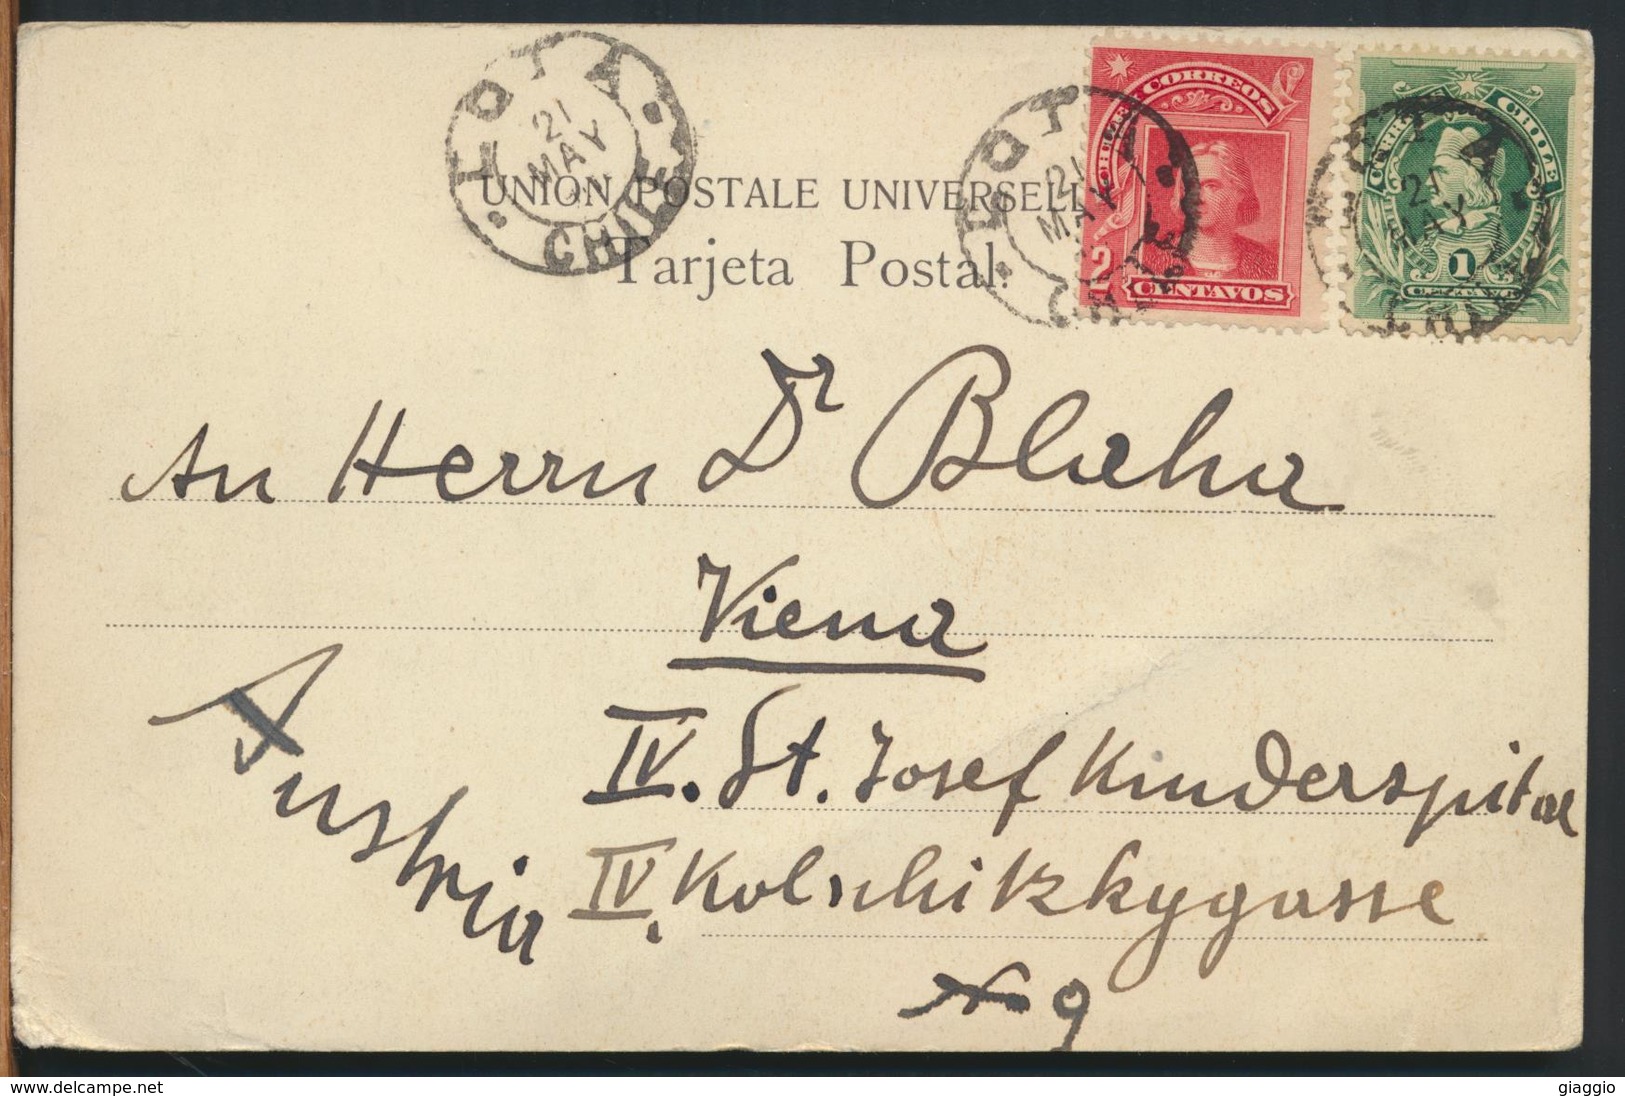 LOTA
21
MAY
CHILE
UNION POSTALE UNIVERSELLE
Tarjeta Postal.
LOTA
21
MAY
CHILE
CORREOS
2
CENTAVOS
LOTA
21
MAY
CHILE
1
CENTAVO
An Herrn Dr Blaha
Viena
Austria
IV. St. Josef Kinderspital
IV. Kolschitzkygasse
No 9
giaggio